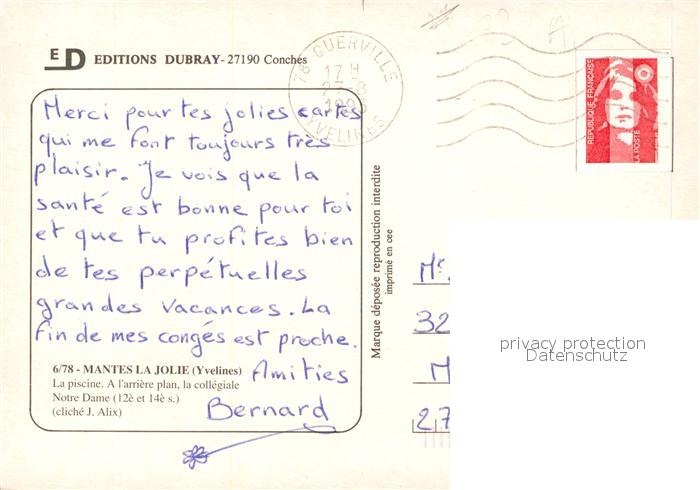 ED EDITIONS DUBRAY - 27190 Conches
78 GUERVILLE
17 H
YVELINES
REPUBLIQUE FRANÇAISE
LA POSTE
Merci pour tes jolies cartes
qui me font toujours très
plaisir. Je vois que la
santé est bonne pour toi
et que tu profites bien
de tes perpétuelles
grandes vacances. La
fin de mes congés est proche.
Amitiés
Bernard
6/78 - MANTES LA JOLIE (Yvelines)
La piscine. A l'arrière plan, la collégiale
Notre Dame (12è et 14è s.)
(cliché J. Alix)
Marque déposée reproduction interdite
imprimé en cee
Mr.
32
M
27
privacy protection
Datenschutz